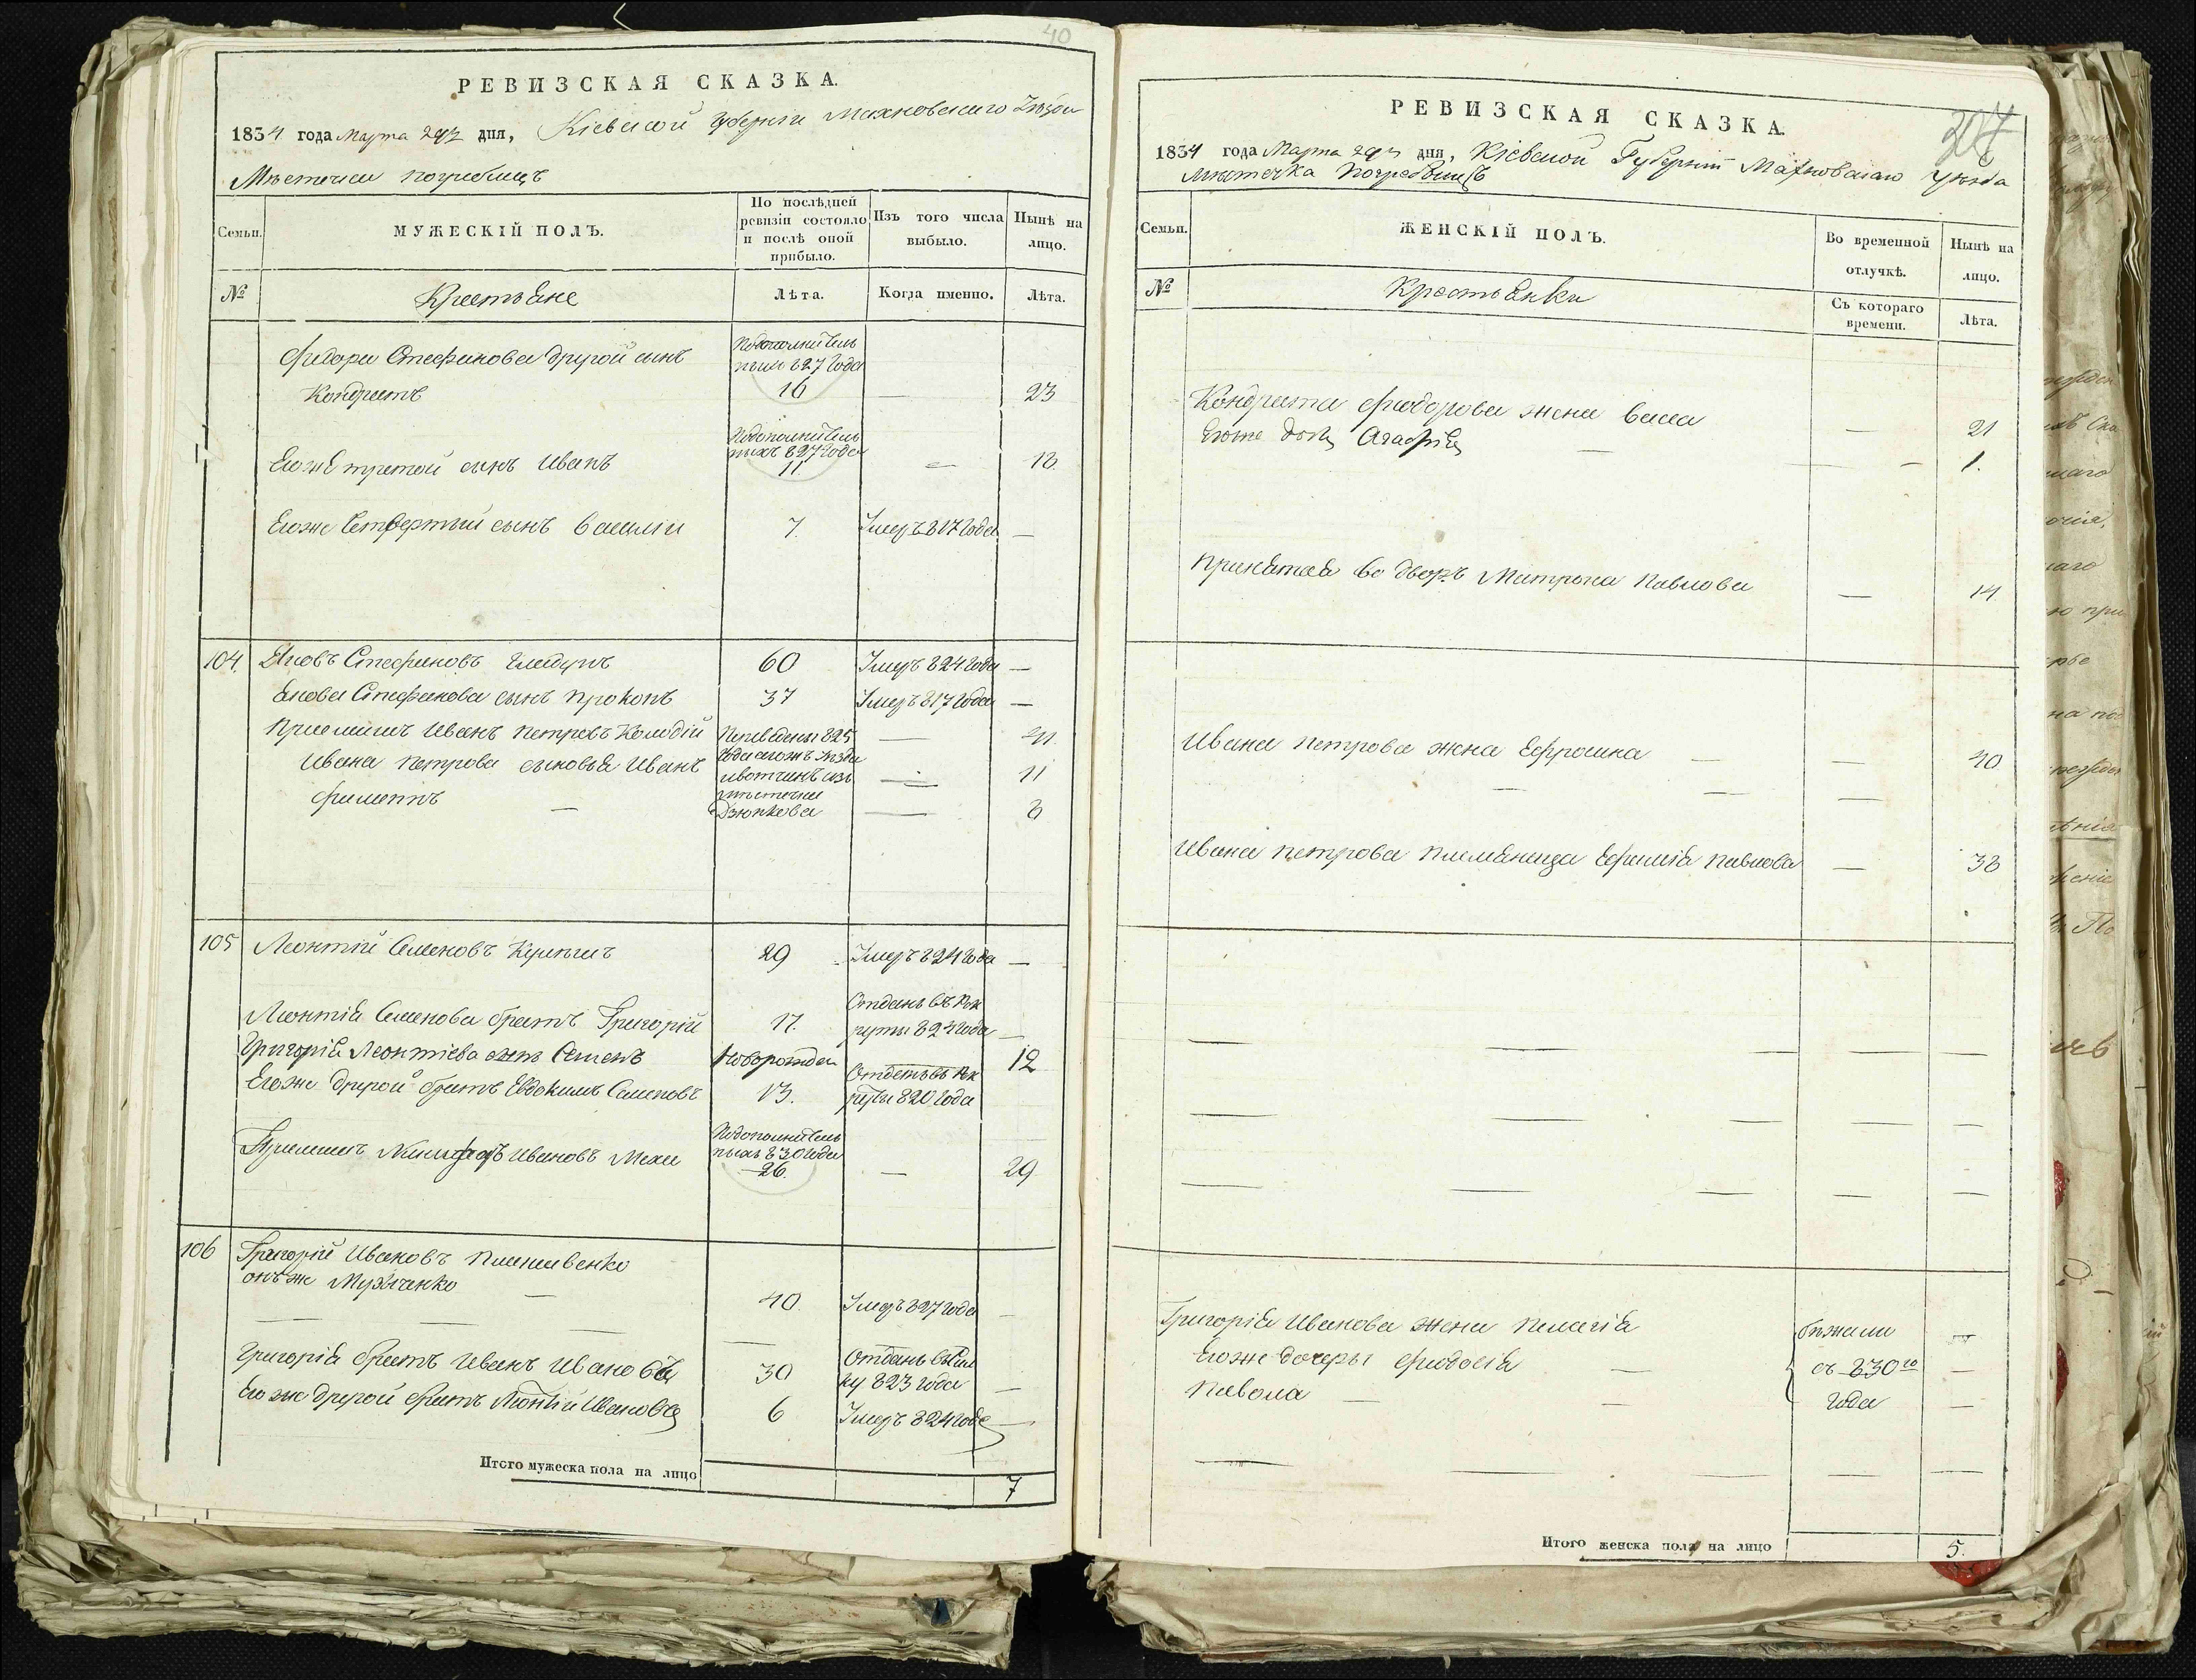 40
РЕВИЗСКАЯ СКАЗКА.
1834 года Марта 29 дня, Кіевской Губерніи Махновскаго Уѣзда
Мѣстечка Погребищъ
Семьи.
МУЖЕСКІЙ ПОЛЪ.
По послѣдней ревизіи состояло и послѣ оной прибыло.
Изъ того числа выбыло.
Нынѣ на лицо.
№
Крестьяне
Лѣта.
Когда именно.
Лѣта.
Фидора Стефанова другой сынъ
Кондратъ
Подополнитель
нымъ 827 года
16
—
23
Егожъ третой сынъ Иванъ
Подополнитель
нымъ 827 года
11
—
18
Егоже Четвертый сынъ Василій
7
Умеръ 817 года
—
104. Яковъ Стефановъ
60
Умеръ 824 года
—
Якова Стефанова сынъ Прокопъ
37
Умеръ 817 года
—
Приемишъ Иванъ Петровъ Колодій
Переведены 825
года тогожъ уѣзда
—
41
Ивана Петрова сыновья Иванъ
—
11
Филиппъ —
мѣстечка
Дзюнкова
—
8
105 Леонтій Семеновъ
29
Умеръ 824 года
—
Леонтія Семенова братъ Григорій
17
Отданъ въ Рек
руты 824 года
—
Григорія Леонтіева сынъ Семенъ
Новорожден
12
Егоже другой братъ Евдокимъ Семеновъ
13.
Отданъ въ Рек
руты 820 года
Приемишъ Никифоръ Ивановъ
Подополнитель
нымъ 830 года
26.
—
29
106 Григорій Ивановъ
онъже Музыченко —
40.
Умеръ 827 года
—
Григорія братъ Иванъ Ивановъ
30
Отданъ въ
ку 823 года
—
Егоже другой братъ Леонтій Ивановъ
6
Умеръ 824 года
—
Итого мужеска пола на лицо
7
РЕВИЗСКАЯ СКАЗКА.
1834 года Марта 29 дня, Кіевской Губерніи Махновскаго Уѣзда
Мѣстечка Погребищъ
Семьи.
ЖЕНСКІЙ ПОЛЪ.
Во временной отлучкѣ.
Нынѣ на лицо.
№
Крестьянки
Съ котораго времени.
Лѣта.
Кондрата Фиодорова жена Васса
—
21
Егоже дочь Агафія
—
1.
Принятая во дворъ Матрона Павлова
—
14
Ивана Петрова жена Ефросина
—
40
Ивана Петрова племяница Ефимія Павлова
—
38
Григорія Иванова жена Пелагія
бѣжали
—
Егоже дочеры Фиодосія
съ 830го
—
Павола
года
—
Итого женска пола на лицо
5.